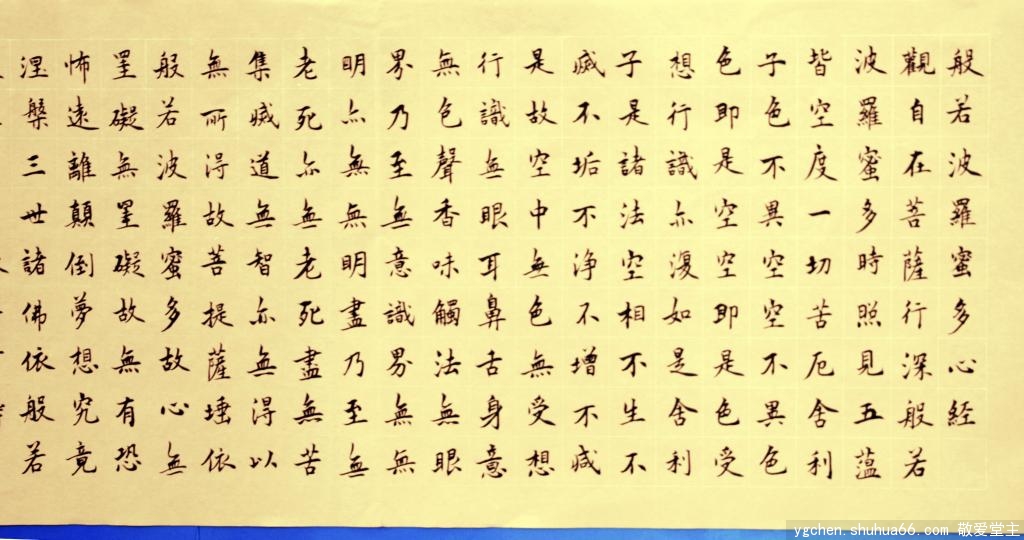 般若波羅蜜多心経
觀自在菩薩行深般若
波羅蜜多時照見五蘊
皆空度一切苦厄舍利
子色不異空空不異色
色即是空空即是色受
想行識亦復如是舍利
子是諸法空相不生不
滅不垢不淨不增不減
是故空中無色無受想
行識無眼耳鼻舌身意
無色聲香味觸法無眼
界乃至無意識界無無
明亦無無明盡乃至無
老死亦無老死盡無苦
集滅道無智亦無得以
無所得故菩提薩埵依
般若波羅蜜多故心無
罣礙無罣礙故無有恐
怖遠離顛倒夢想究竟
涅槃三世諸佛依般若
ygchen.shuhua66.com 敬爱堂主